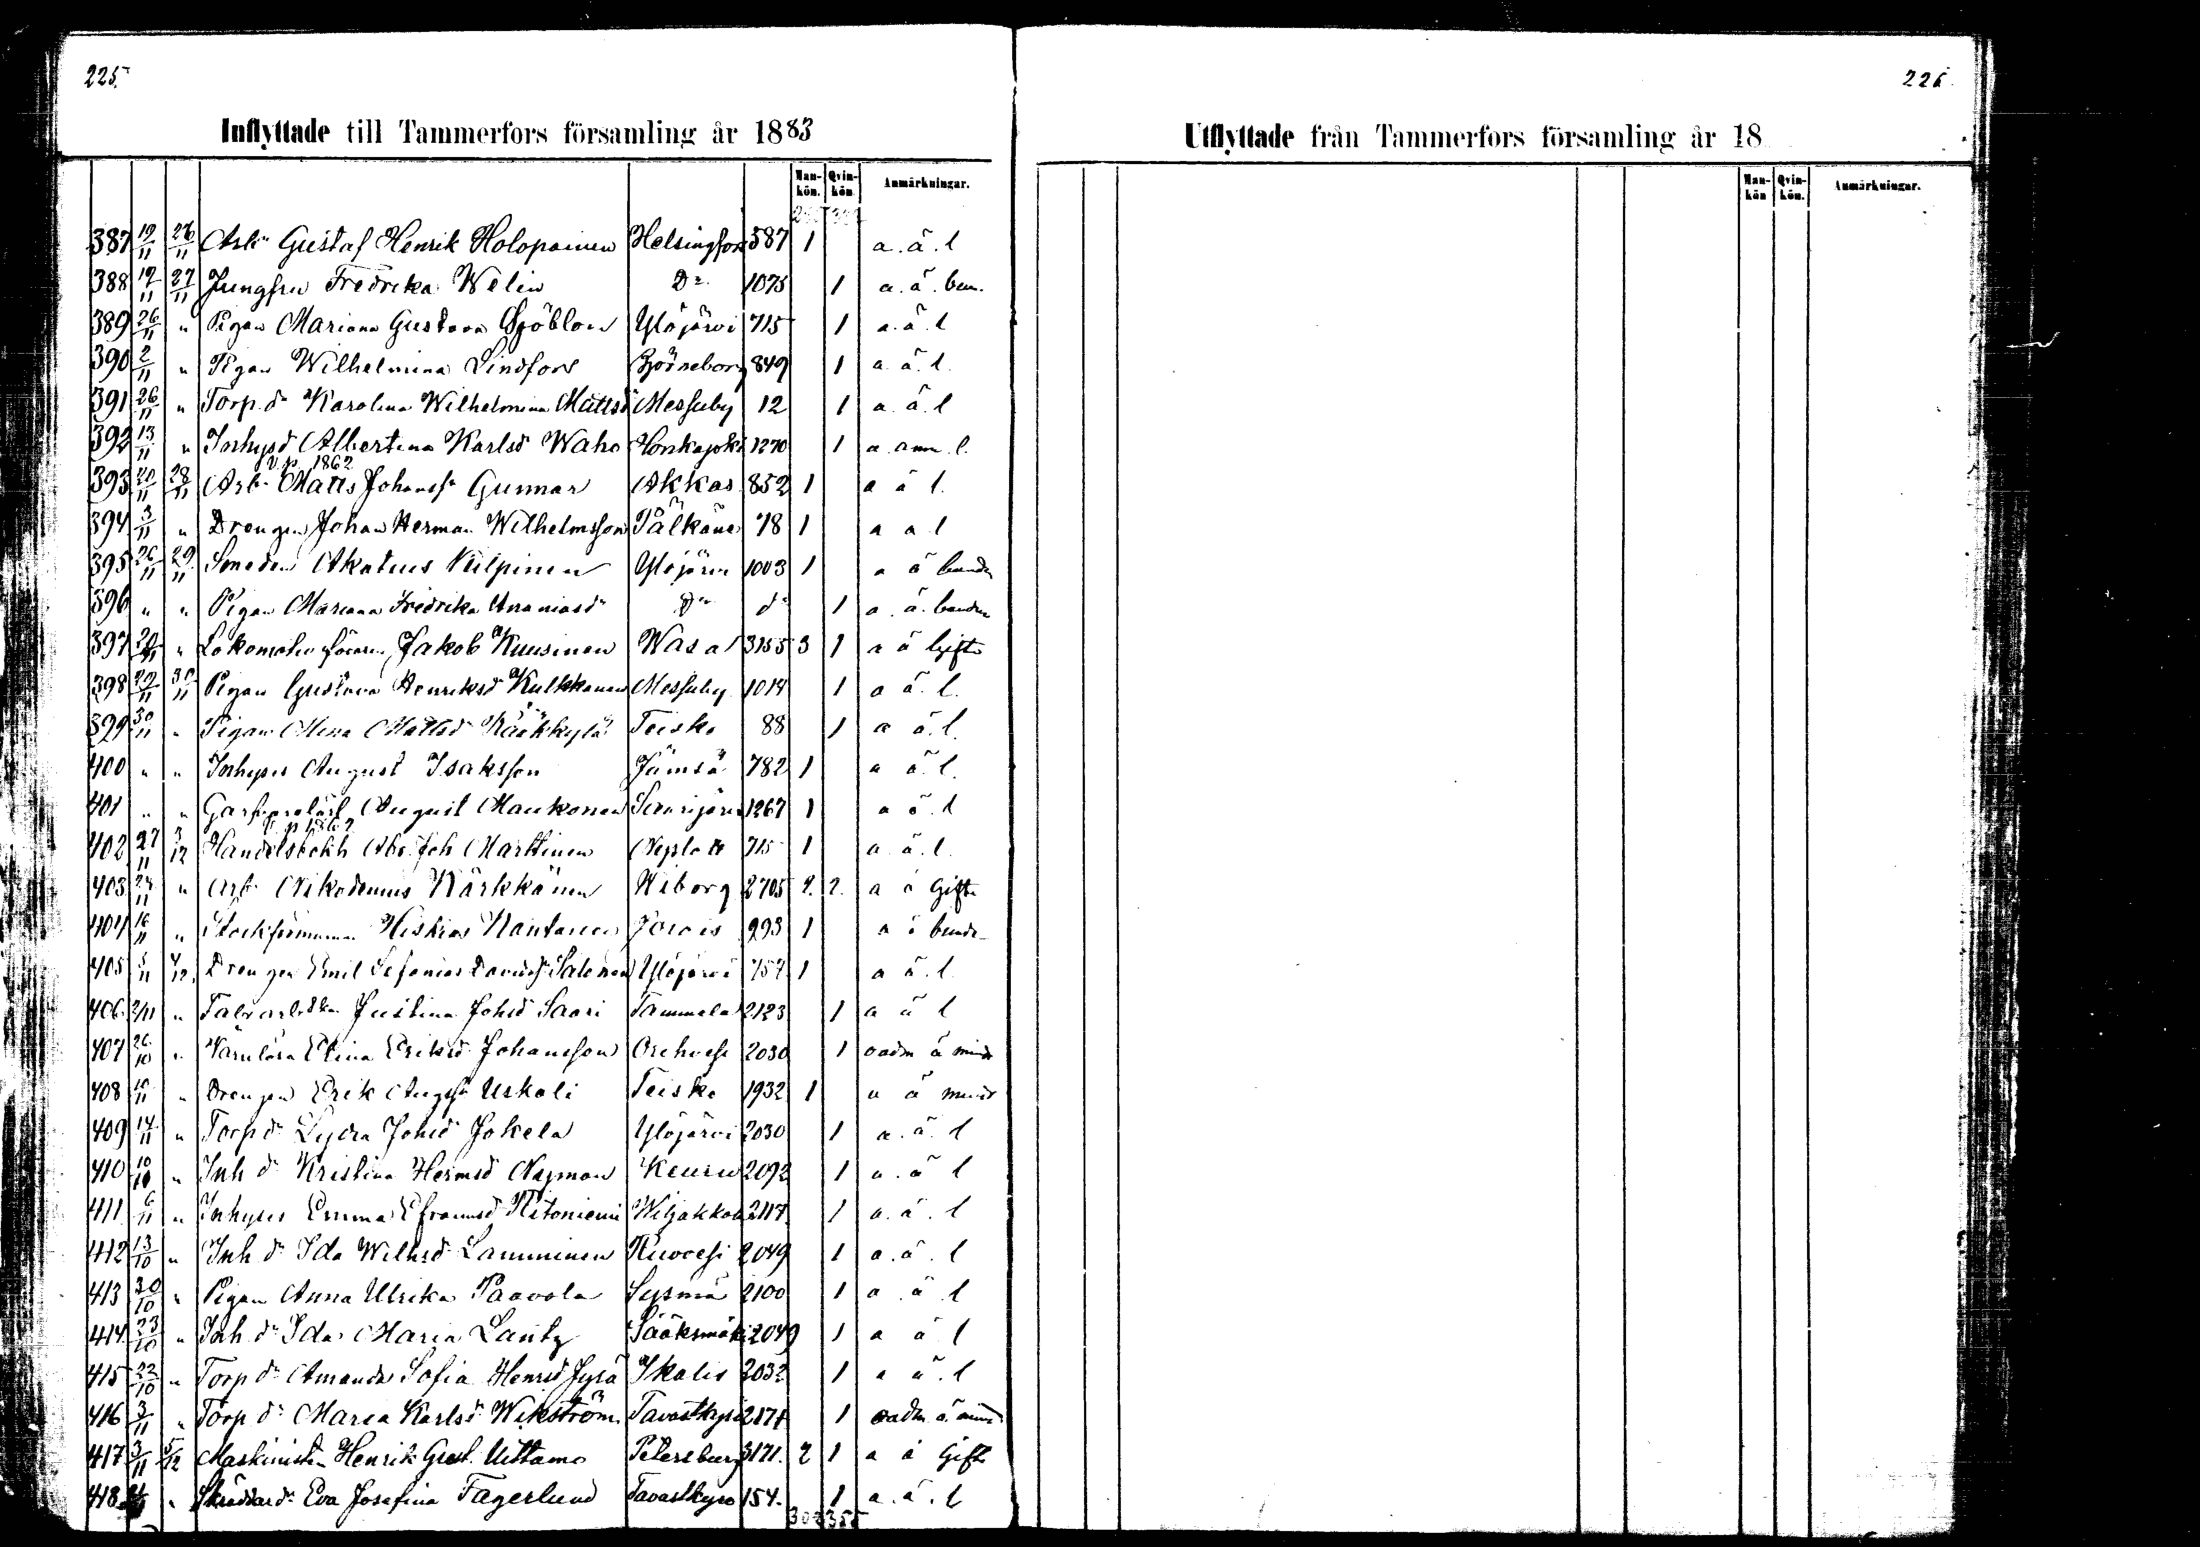 225.
Inflyttade till Tammerfors församling år 1883
Man-kön. Qvin-kön Anmärkningar.
387 19/11 26/11 Arb. Gustaf Henrik Holopainen Helsingfors 587 1 a. ä. l
388 19/11 27/11 Jungfru Fredrika Welin Do 1075 1 a. ä. ben.
389 26/11 " Pigan Mariana Gustava Sjöblom Ylöjärvi 715 1 a. ä. l
390 2/11 " Pigan Wilhelmina Lindfors Björneborg 849 1 a. ä. l.
391 26/11 " Torp. dr Karolina Wilhelmina Mattsd Messuby 12 1 a. ä. l
392 13/11 " Inhysd Albertina Karlsd Waho Honkajoki 1270 1 a ann l.
v. p. 1862
393 20/11 28/11 Arb. Matts Johanss. Gunnar Akkas 852 1 a ä l.
394 3/11 " Drengen Johan Herman Wilhelmsson Pälkäne 78 1 a a l
395 26/11 29/11 Smeden Akatius Nilpinen Ylöjärvi 1003 1 a ä bunden
396 " " Pigan Mariana Fredrika Ananiasdr Do do 1 a. ä. bunden
397 20/11 " Lokomotivföraren Jakob Kuusinen Wasa 3155 3 1 a ä Gifta
398 29/11 30/11 Pigan Gustava Henriksd Kulkkanen Messuby 1014 1 a ä. l.
399 30/11 " Pigan Mina Mattsd Kääkkylä Teisko 88 1 a ä. l.
400 " " Inhyses August Isaksson Jämsä 782 1 a ä. l.
401 " " August Maukonen Saarijärvi 1267 1 a ä. l
402 27/11 3/12 Handelsbokh Abr. Joh Marttinen Nyslott 715 1 a. ä. l.
403 24/11 " Arb. Nikodemus Kärkkäinen Wiborg 2705 2. 2. a ä Gifta
404 16/11 " Hiskias Nantanen Jorois 993 1 a ä bunde
405 5/11 4/12. Drengen Emil Sefanias Davidss. Salonen Ylöjärvi 757 1 a ä. l.
406. 2/11 " Justina Johsd Saari Tammela 2123 1 a ä l
407 26/10 " Elina Eriksd Johansson Orehvesi 2030 1 oadm ä mind
408 10/11 " Drengen Erik Augss. Uskali Teisko 1932 1 a ä mind
409 14/11 " Torp dr Lydia Johsd Jokela Ylöjärvi 2030 1 a. ä. l
410 10/10 " Inh dr Kristina Hermsd Nyman Keuru 2092 1 a. ä l
411 6/11 " Inhyses Emma Efraimsd Ritoniemi Wiljakkala 2117 1 a. ä. l
412 13/10 " Inh dr Ida Wilhsd Lamminen Ruovesi 2049 1 a. ä. l
413 30/10 " Pigan Anna Ulrika Paavola Sysmä 2100 1 a ä l
414. 23/10 " Inh. dr Ida Maria Lantz Sääksmäki 2049 1 a ä l
415 22/10 " Torp dr Amanda Sofia Henrsd Jyrä Ikalis 2032 1 a ä. l
416 3/11 " Torp dr Maria Karlsd Wikström Tavastkyro 2171 1 oadm ä. mind
417 3/11 5/12 Maskinisten Henrik Gust. Uittamo Petersburg 3171. 2 1 a ä Gift
418 " Skräddard. Eva Josefina Fagerlund Tavastkyro 154. 1 a. ä. l
302 355
226.
Utflyttade från Tammerfors församling år 18
Man-kön Qvin-kön. Anmärkningar.